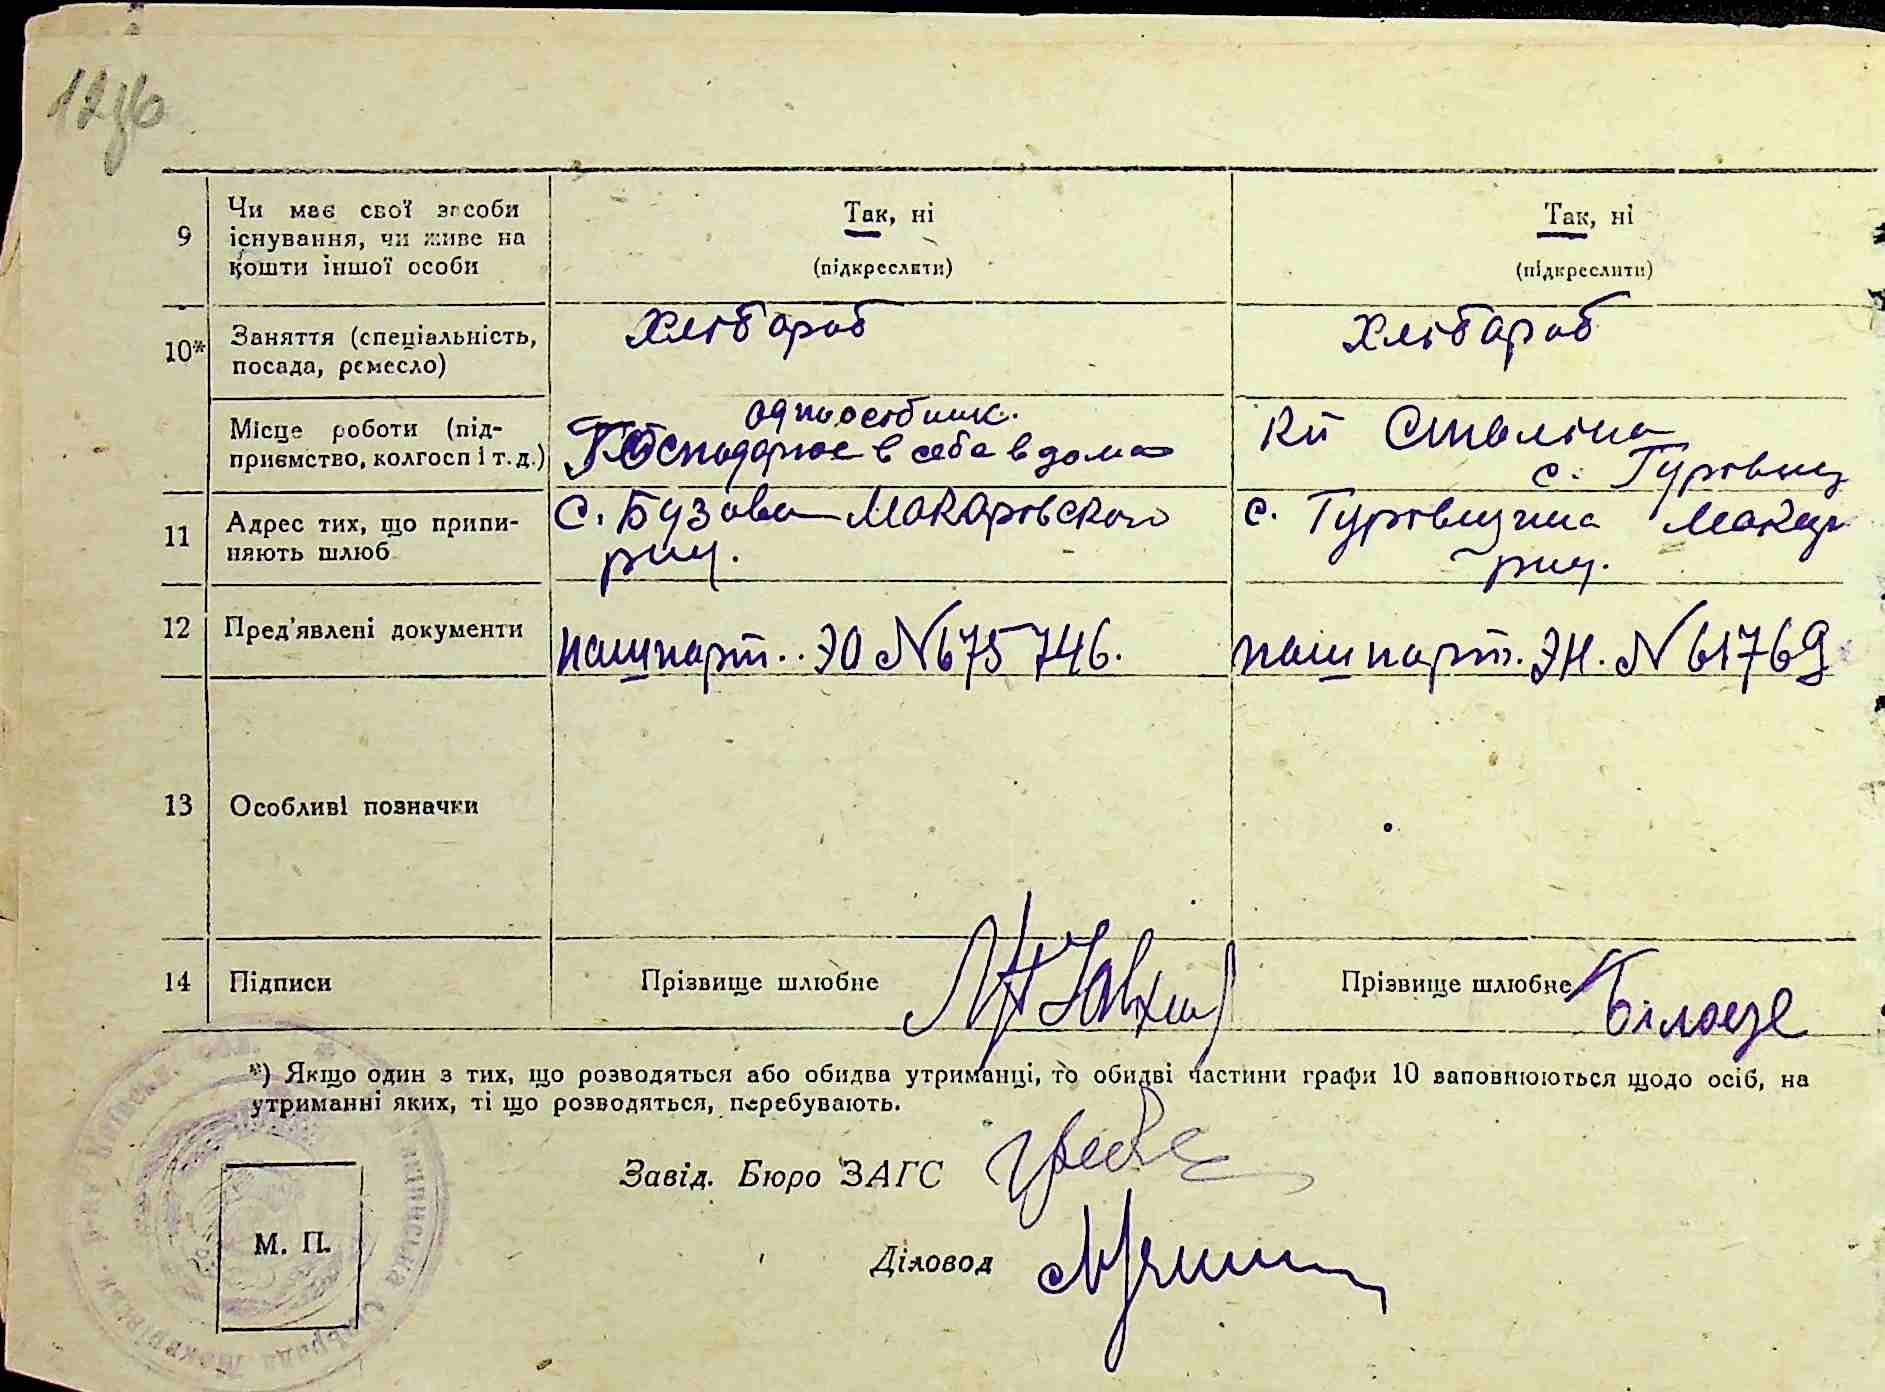 12зв
9 Чи має свої засоби існування, чи живе на кошти іншої особи
Так, ні
(підкреслити)
Так, ні
(підкреслити)
10* Заняття (спеціальність, посада, ремесло)
Хлібороб
Хлібороб
Місце роботи (підприємство, колгосп і т. д.)
одноосібник.
Господарює в себе в дома
Кп Сталіна
с.
11 Адрес тих, що припиняють шлюб
с. Бузова Макаровского
рну.
с. Гуровщина
рну.
12 Пред'явлені документи
пашпарт. ЭО № 675746.
пашпарт. ЭН. № 61769
13 Особливі позначки
14 Підписи
Прізвище шлюбне
Прізвище шлюбне
*) Якщо один з тих, що розводяться або обидва утриманці, то обидві частини графи 10 заповнюються щодо осіб, на
утриманні яких, ті що розводяться, перебувають.
Завід. Бюро ЗАГС
Діловод
М. П.